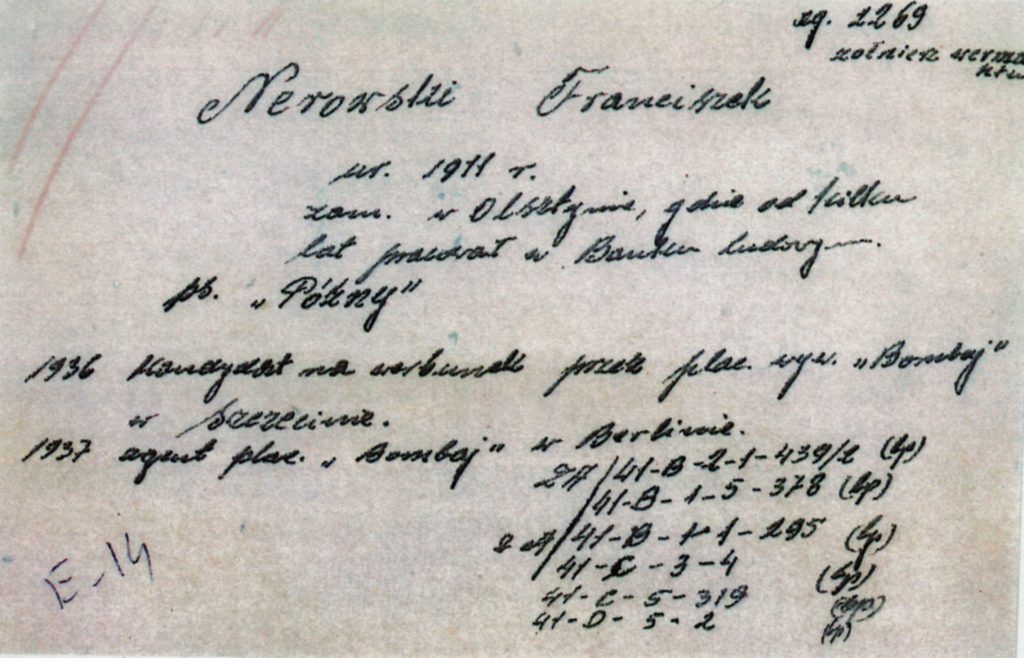 zg. 1269
żołnierz wermachtu
Nerowski Franciszek
ur. 1911 r.
zam. w Olsztynie, gdzie od kilku
lat pracował w Banku ludowym.
ps. „Późny"
1936 Kandydat na werbunek przez plac. wyw. „Bombaj"
w Szczecinie.
1937 agent plac. „Bombaj" w Berlinie.
41-B-2-1-439/2 (lp)
41-B-1-5-378 (lp)
41-B-1-1-295 (lp)
41-C-3-4 (lp)
41-C-5-319
41-D-5-2 (lp)
E-14